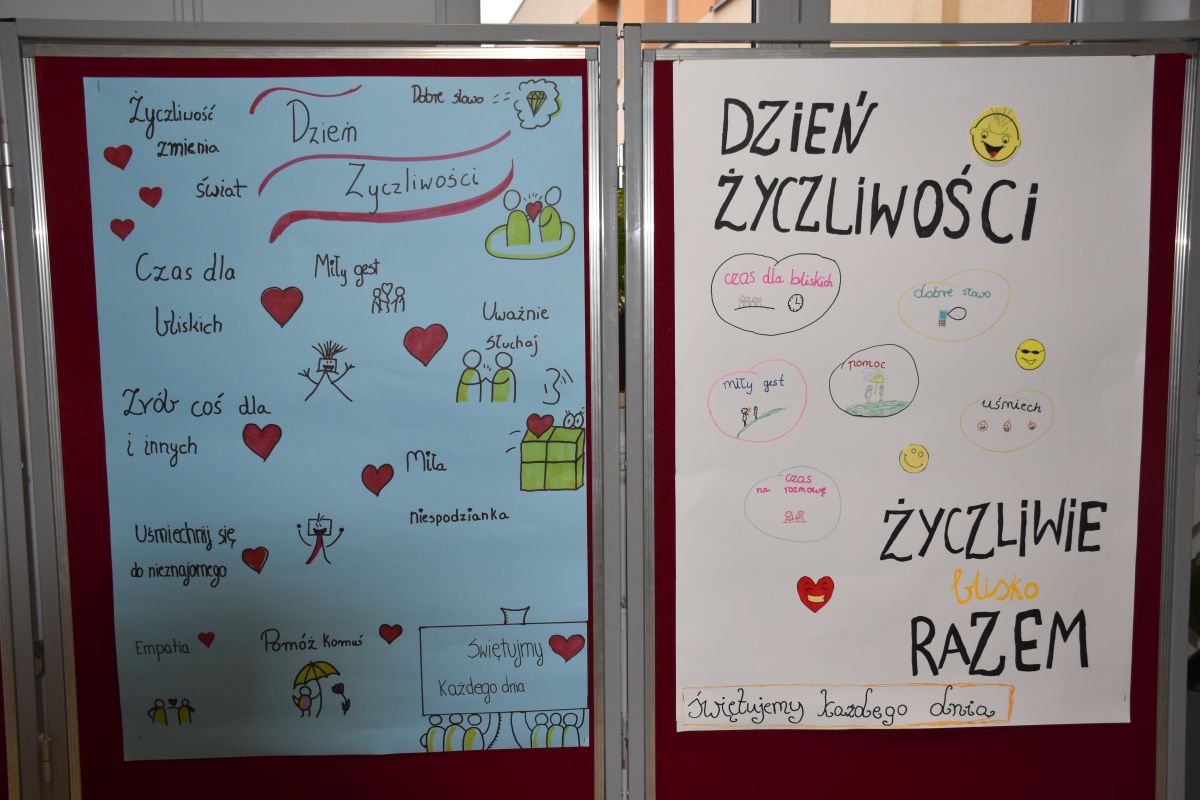 Życzliwość
zmienia
świat
Dzień
Życzliwości
Dobre słowo
Czas dla
bliskich
Miły gest
Uważnie
słuchaj
Zrób coś dla
i innych
Miła
niespodzianka
Uśmiechnij się
do nieznajomego
Empatia
Pomóż Komuś
Świętujmy
Każdego dnia
DZIEŃ
ŻYCZLIWOŚCI
czas dla bliskich
dobre słowo
miły gest
pomoc
uśmiech
czas
na rozmowę
ŻYCZLIWIE
blisko
RAZEM
świętujemy każdego dnia